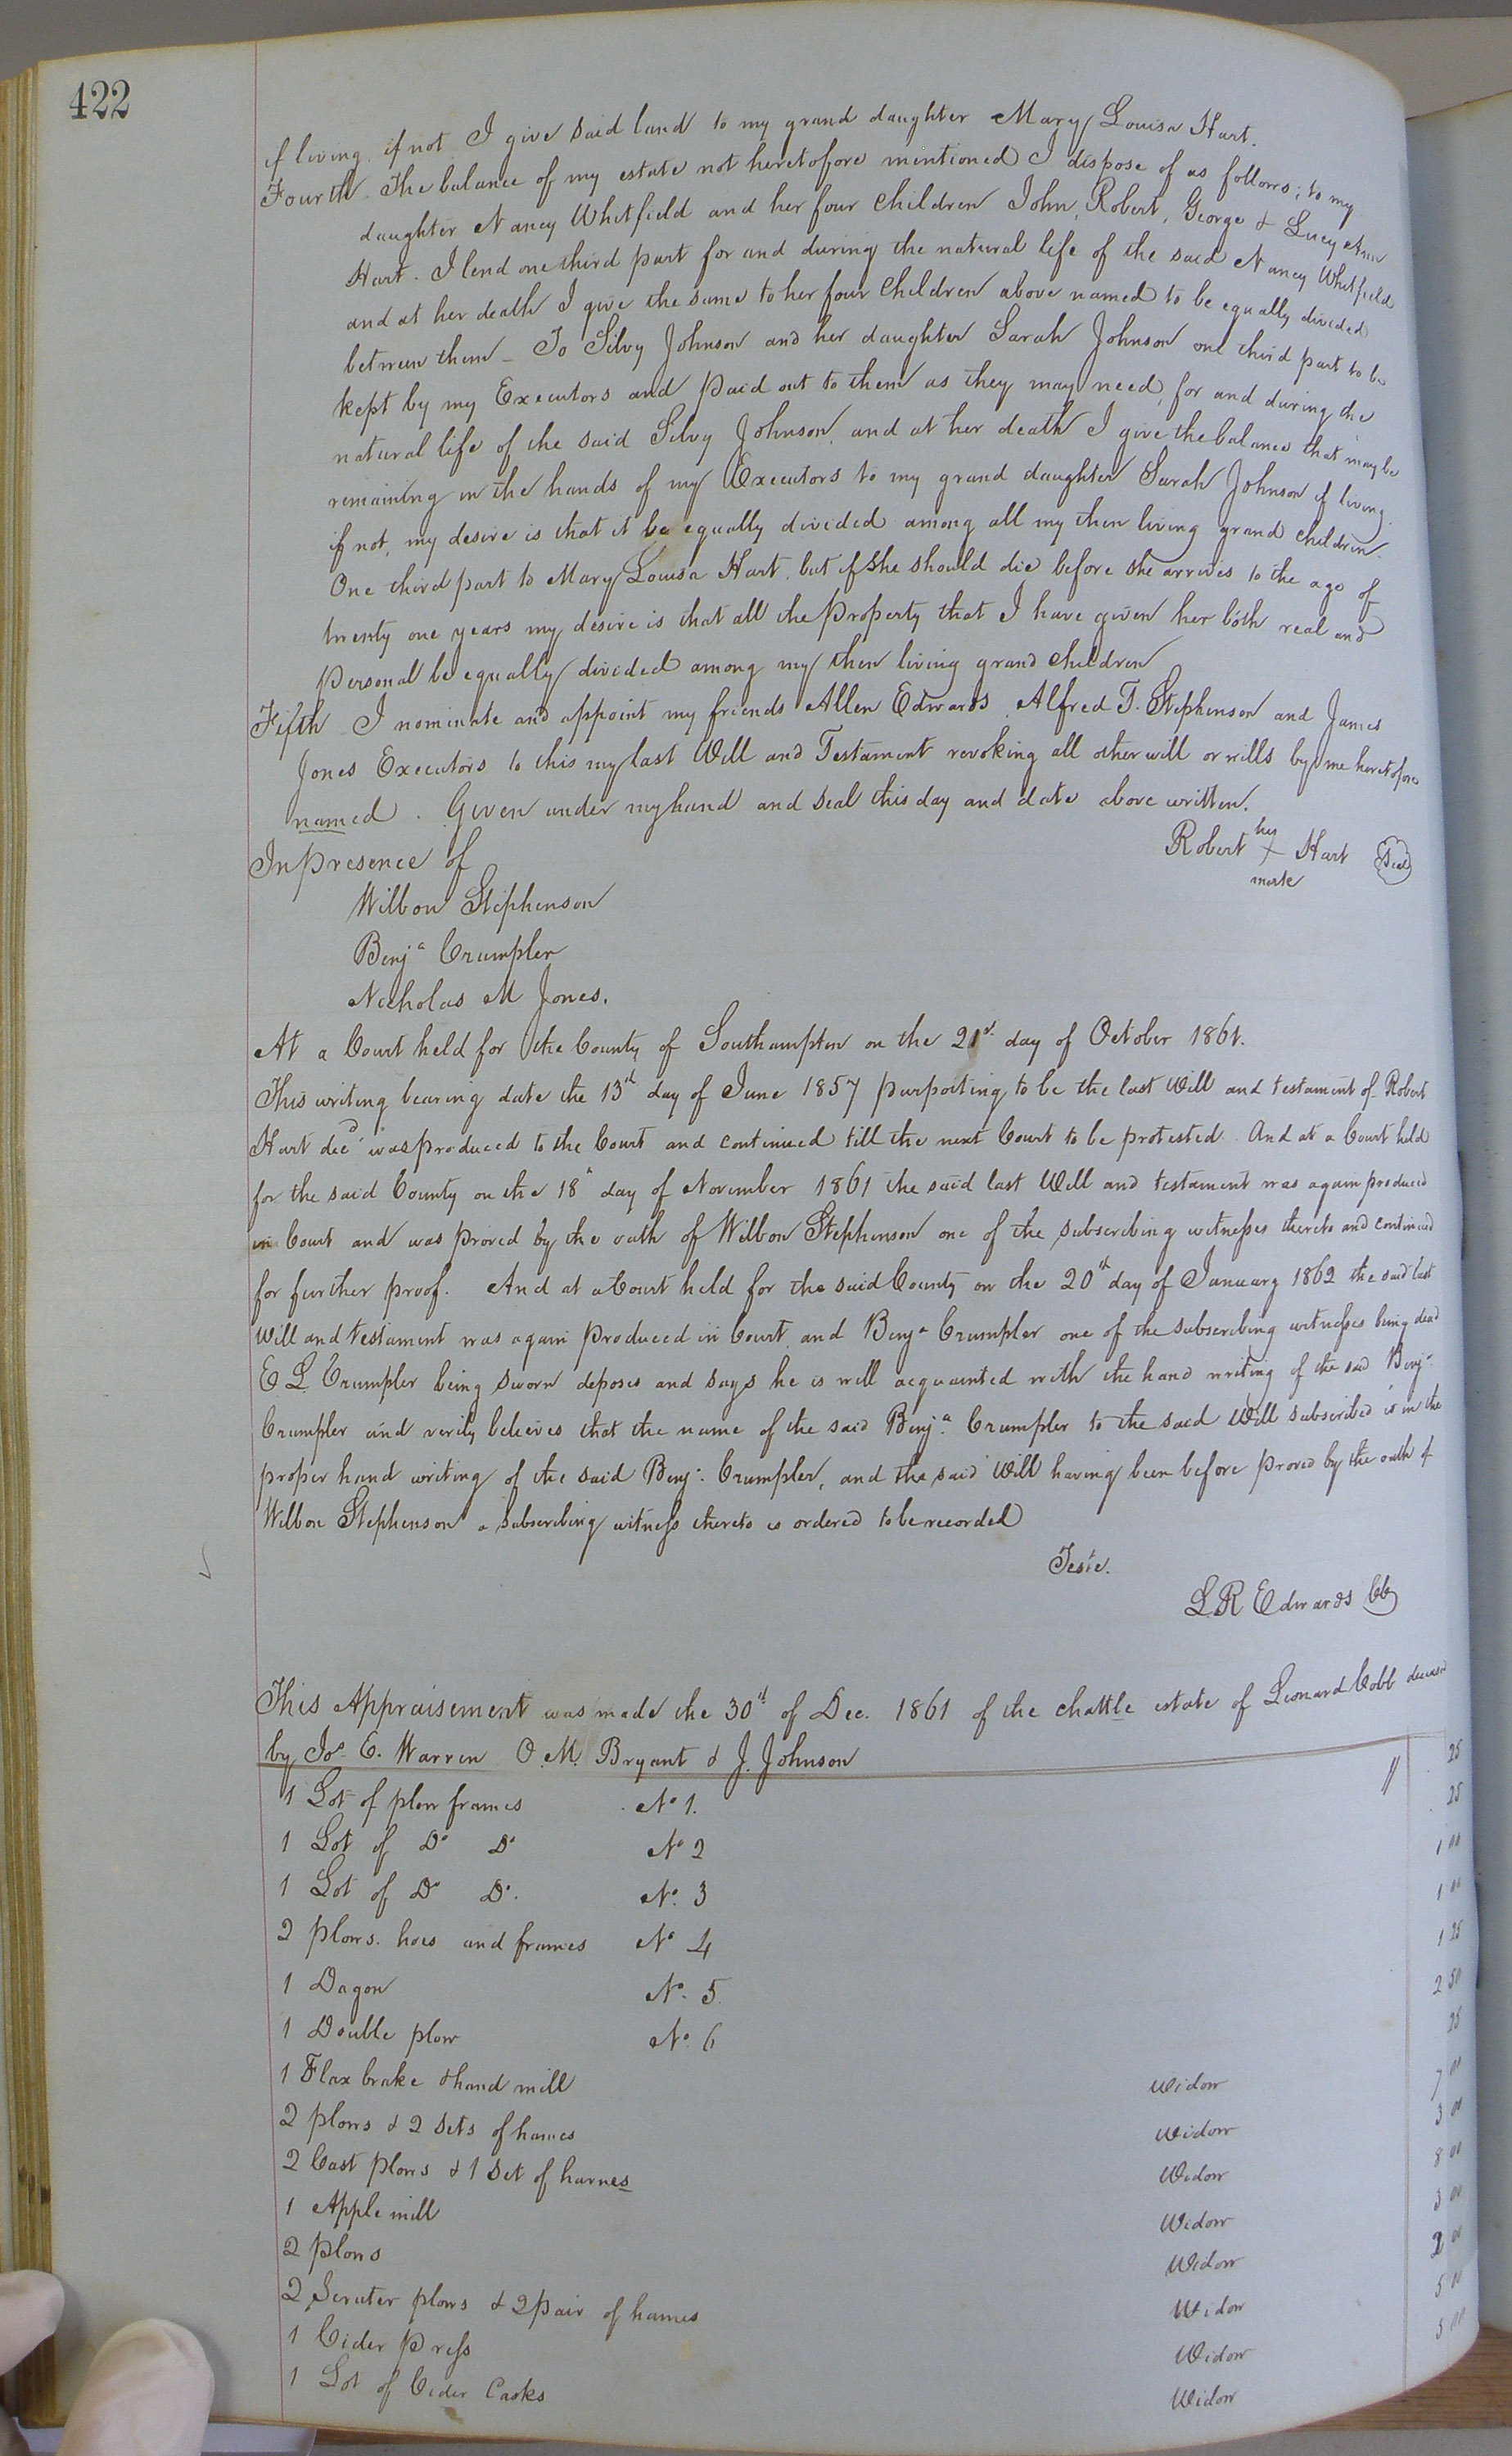 422
if living, if not I give said land to my grand daughter Mary Louisa Hart.
Fourth. The balance of my estate not heretofore mentioned I dispose of as follows; to my
daughter Nancy Whitfield and her four children John, Robert, George & Lucy Ann
Hart. I lend one third part for and during the natural life of the said Nancy Whitfield
and at her death I give the same to her four children above named to be equally divided
between them – To Silvy Johnson and her daughter Sarah Johnson one third part to be
kept by my Executors and paid out to them as they may need, for and during the
natural life of the said Silvy Johnson, and at her death I give the balance that may be
remaining in the hands of my Executors to my grand daughter Sarah Johnson if living
if not, my desire is that it be equally divided among all my then living grand children.
One third part to Mary Louisa Hart, but if she should die before she arrives to the age of
twenty one years my desire is that all the property that I have given her both real and
personal be equally divided among my then living grand children
Fifth I nominate and appoint my friends Allen Edwards, Alfred T. Stephenson and James
Jones Executors to this my last Will and Testament revoking all other will or wills by me heretofore
named. Given under my hand and seal this day and date above written.
In presence of
Robert his X mark Hart Seal
Wilbon Stephenson
Benja Crumpler
Nicholas M Jones.
At a Court held for the County of Southampton on the 21st day of October 1861.
This writing bearing date the 13th day of June 1857 purporting to be the last will and testament of Robert
Hart decd was produced to the Court and continued till the next Court to be protested. And at a Court held
for the said County on the 18th day of November 1861 the said last Will and testament was again produced
in Court and was proved by the oath of Wilbon Stephenson one of the subscribing witnesses thereto and continued
for further proof. And at a Court held for the said County on the 20th day of January 1862 the said last
Will and testament was again produced in Court and Benja Crumpler one of the subscribing witnesses being dead
E L Crumpler being sworn deposes and says he is well acquainted with the hand writing of the said Benja
Crumpler and verily believes that the name of the said Benja. Crumpler to the said Will subscribed is in the
proper hand writing of the said Benj: Crumpler, and the said Will having been before proved by the oath of
Wilbon Stephenson a subscribing witness thereto is ordered to be recorded
Teste.
L R Edwards CC
This Appraisement was made the 30th of Dec. 1861 of the chattle estate of Leonard Cobb deceased
by Jos. E. Warren O. M. Bryant & J. Johnson
1 Lot of plow frames No 1. 25
1 Lot of Do Do No 2 25
1 Lot of Do Do. No. 3 1 00
2 plows. hoes and frames No 4 1 00
1 Dagon No. 5. 1 25
1 Double plow No. 6 2 50
1 Flax brake & hand mill Widow 25
2 plows & 2 sets of hames Widow 7 00
2 Cast plows & 1 set of harnes Widow 3 00
1 Apple mill Widow 8 00
2 plows Widow 3 00
2 Scruter plows & 2 pair of hames Widow 2 00
1 Cider Press Widow 5 00
1 Lot of Cider Casks Widow 5 00